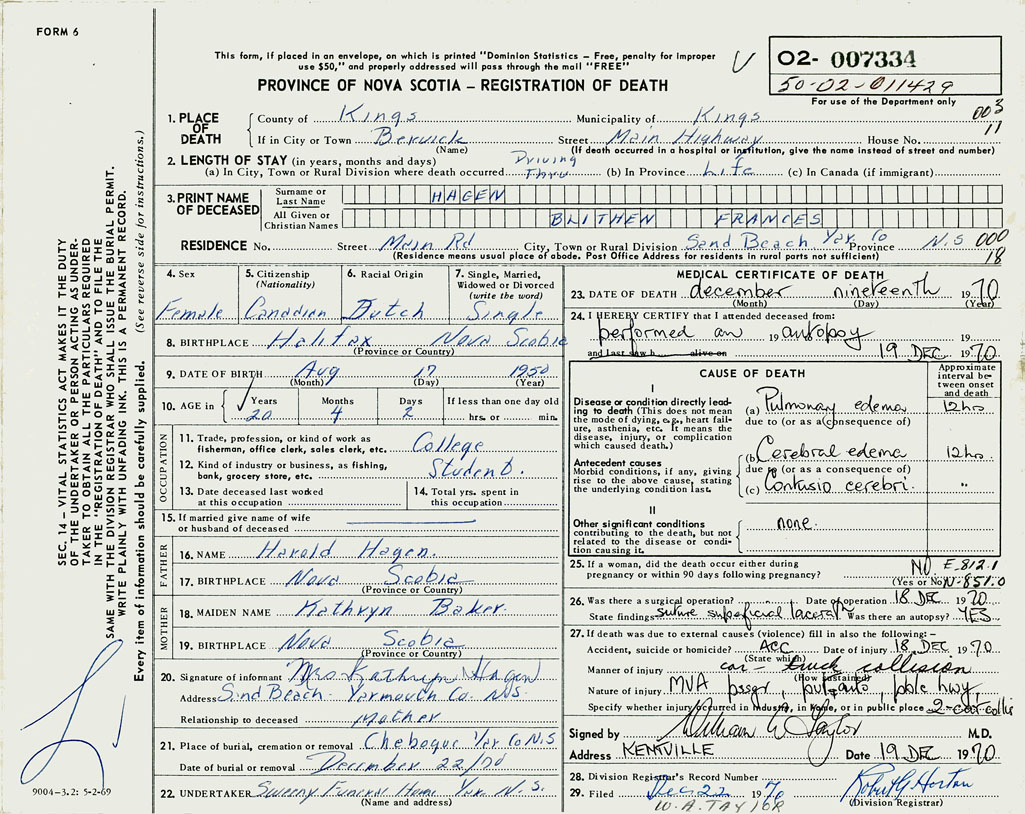 FORM 6
This form, if placed in an envelope, on which is printed "Dominion Statistics – Free, penalty for improper
use $50," and properly addressed will pass through the mail "FREE"
PROVINCE OF NOVA SCOTIA – REGISTRATION OF DEATH
02- 007334
50-02-011429
For use of the Department only
003
11
1. PLACE OF DEATH
County of Kings Municipality of Kings
If in City or Town Berwick Street Main Highway House No.
(Name) (If death occurred in a hospital or institution, give the name instead of street and number)
2. LENGTH OF STAY (in years, months and days)
(a) In City, Town or Rural Division where death occurred Driving Thru (b) In Province Life (c) In Canada (if immigrant)
3. PRINT NAME OF DECEASED
Surname or Last Name HAGEN
All Given or Christian Names BLITHEN FRANCES
RESIDENCE No. Street Main Rd City, Town or Rural Division Sand Beach Yar Co Province N.S 000
(Residence means usual place of abode. Post Office Address for residents in rural parts not sufficient) 18
4. Sex
Female
5. Citizenship
(Nationality)
Canadian
6. Racial Origin
Dutch
7. Single, Married,
Widowed or Divorced
(write the word)
Single
8. BIRTHPLACE Halifax Nova Scotia
(Province or Country)
9. DATE OF BIRTH Aug 17 1950
(Month) (Day) (Year)
10. AGE in
Years 20
Months 4
Days 2
If less than one day old
hrs. or min.
OCCUPATION
11. Trade, profession, or kind of work as
fisherman, office clerk, sales clerk, etc. College
12. Kind of industry or business, as fishing,
bank, grocery store, etc. Student.
13. Date deceased last worked
at this occupation
14. Total yrs. spent in
this occupation
15. If married give name of wife
or husband of deceased
FATHER
16. NAME Harold Hagen.
17. BIRTHPLACE Nova Scotia
(Province or Country)
MOTHER
18. MAIDEN NAME Kathryn Baker.
19. BIRTHPLACE Nova Scotia
(Province or Country)
20. Signature of informant Mrs Kathryn Hagen
Address Sand Beach Yarmouth Co. N.S.
Relationship to deceased Mother
21. Place of burial, cremation or removal Chebogue Yar Co N.S
Date of burial or removal December 22/70
22. UNDERTAKER Sweeny Funeral Home Yar. N.S.
(Name and address)
MEDICAL CERTIFICATE OF DEATH
23. DATE OF DEATH december nineteenth 1970
(Month) (Day) (Year)
24. I HEREBY CERTIFY that I attended deceased from:
performed an 19 autopsy 19
and last saw h alive on 19 DEC 1970
CAUSE OF DEATH
Approximate
interval be-
tween onset
and death
I
Disease or condition directly lead-
ing to death (This does not mean
the mode of dying, e.g., heart fail-
ure, asthenia, etc. It means the
disease, injury, or complication
which caused death.)
(a) Pulmonary edema 12 hrs
due to (or as a consequence of)
Antecedent causes
Morbid conditions, if any, giving
rise to the above cause, stating
the underlying condition last.
(b) Cerebral edema 12 hrs.
due to (or as a consequence of)
(c) Contusio cerebri. "
II
Other significant conditions
contributing to the death, but not
related to the disease or condi-
tion causing it.
none.
25. If a woman, did the death occur either during
pregnancy or within 90 days following pregnancy? NO E-812.1
(Yes or No) N-851.0
26. Was there a surgical operation? Date of operation 18 DEC 1970
State findings suture superficial lacerat Was there an autopsy? YES
27. If death was due to external causes (violence) fill in also the following:–
Accident, suicide or homicide? ACC Date of injury 18 DEC 1970
(State which)
Manner of injury car - truck collision
(How sustained)
Nature of injury MVA pssgr, pvt auto, pblc hwy,
Specify whether injury occurred in Industry, in Home, or in public place 2-car collis
Signed by William W Taylor M.D.
Address KENTVILLE Date 19 DEC 1970
28. Division Registrar's Record Number
29. Filed Dec 22 1970 Robert G Horton
W. A. TAYLOR (Division Registrar)
SEC. 14 – VITAL STATISTICS ACT MAKES IT THE DUTY
OF THE UNDERTAKER OR PERSON ACTING AS UNDER-
TAKER TO OBTAIN ALL THE PARTICULARS REQUIRED
IN THE "REGISTRATION OF DEATH" AND TO FILE THE
SAME WITH THE DIVISION REGISTRAR WHO SHALL ISSUE THE BURIAL PERMIT.
WRITE PLAINLY WITH UNFADING INK. THIS IS A PERMANENT RECORD.
Every item of information should be carefully supplied. (See reverse side for instructions.)
9004-3.2: 5-2-69